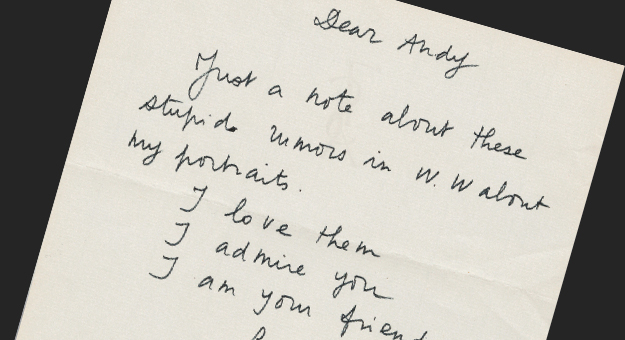 Dear Andy
Just a note about these
stupid rumors in W.W about
my portraits.
I love them
I admire you
I am your friend